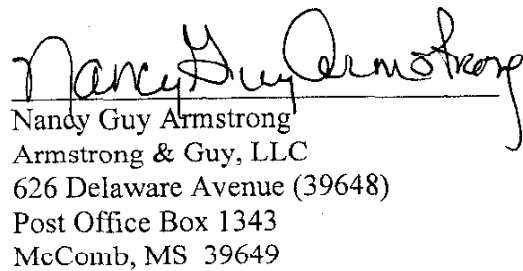 Nancy Guy Armstrong
Nancy Guy Armstrong
Armstrong & Guy, LLC
626 Delaware Avenue (39648)
Post Office Box 1343
McComb, MS 39649